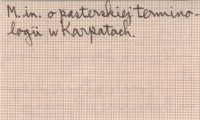 M. in. o pasterskiej termino-
logii w Karpatach.